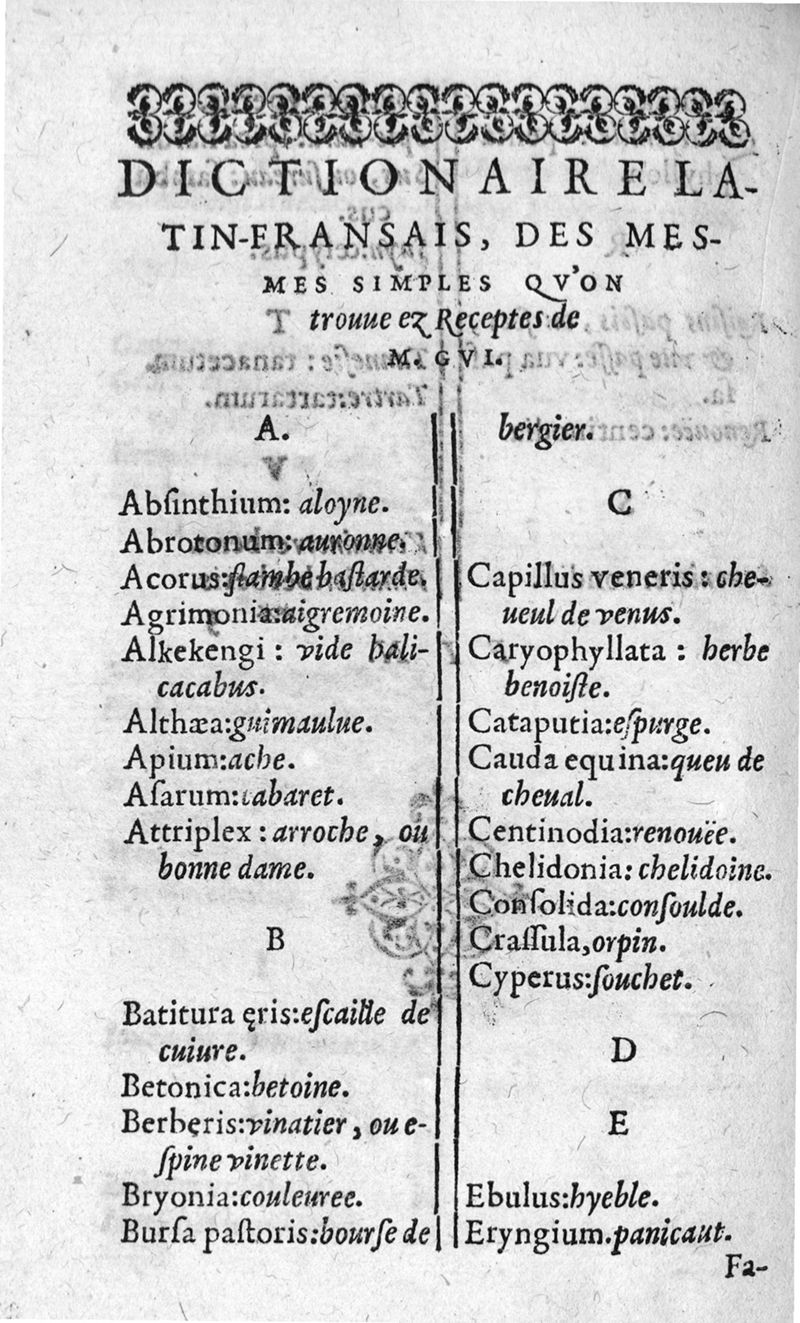 DICTIONAIRE LA-
TIN-FRANSAIS, DES MES-
MES SIMPLES QV'ON
trouue ez Receptes de
M. G VI.
A.
Abſinthium: aloyne.
Abrotonum: auronne.
Acorus:flambe baſtarde.
Agrimonia:aigremoine.
Alkekengi : vide hali-
cacabus.
Althæa:guimaulue.
Apium:ache.
Aſarum:cabaret.
Attriplex : arroche, ou
bonne dame.
B
Batitura ęris:eſcaille de
cuiure.
Betonica:betoine.
Berberis:vinatier, ou e-
ſpine vinette.
Bryonia:couleuree.
Burſa paſtoris:bourſe de
bergier.
C
Capillus veneris : che-
ueul de venus.
Caryophyllata : herbe
benoiſte.
Cataputia:eſpurge.
Cauda equina:queu de
cheual.
Centinodia:renouëe.
Chelidonia: chelidoine.
Conſolida:conſoulde.
Craſſula,orpin.
Cyperus:ſouchet.
D
E
Ebulus:hyeble.
Eryngium.panicaut.
Fa-